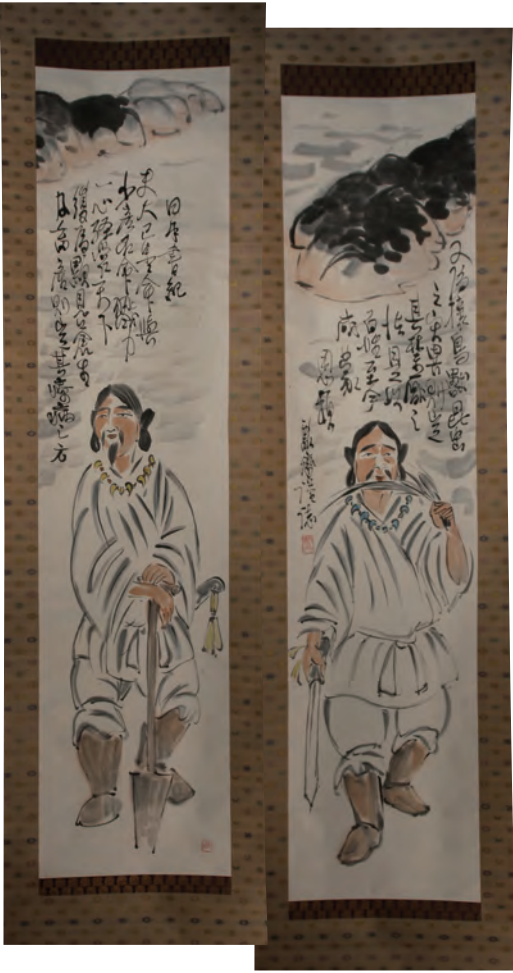 日本書紀
夫大己貴命與
少彦名命戮力
一心経営天下
復為顕見蒼生
及畜産則定其療病之方
又為攘鳥獣昆虫
之災異則定
其禁厭之
法是以
百姓至今
咸蒙
恩頼